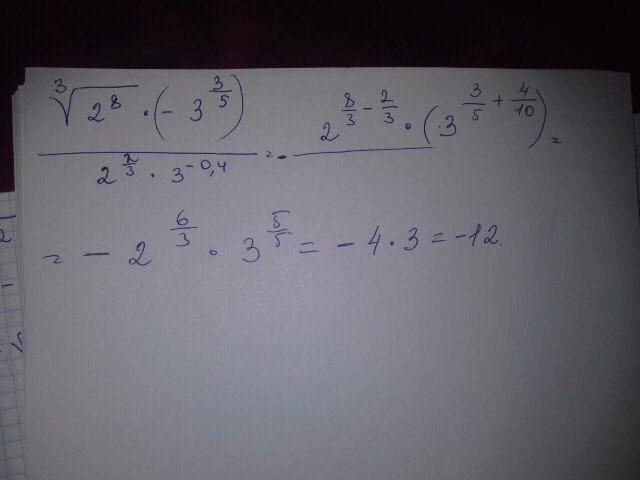 ∛(2^8) · (-3^(3/5)) / (2^(2/3) · 3^(-0,4)) = - 2^(8/3 - 2/3) · (3^(3/5 + 4/10)) =
= - 2^(6/3) · 3^(5/5) = - 4 · 3 = -12.